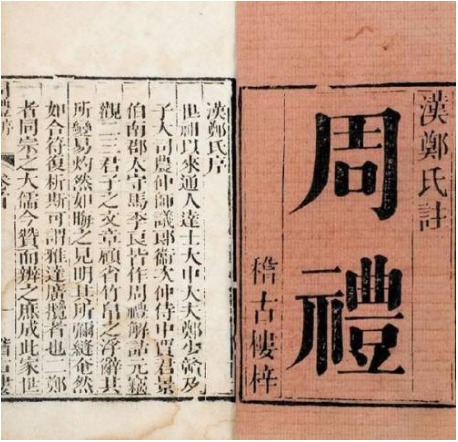 漢鄭氏註
周禮
稽古樓梓
漢鄭氏序
世祖以來通人達士大中大夫鄭少贛及
子大司農仲師議郎衛次仲侍中賈君景
伯南郡太守馬季長皆作周禮解詁元竊
觀二三君子之文章顧省竹帛之浮辭其
所變易灼然如晦之見明其所彌縫奄然
如合符復析斯可謂雅達廣攬者也二鄭
者同宗之大儒今贊而辨之庶成此家世
稽古樓